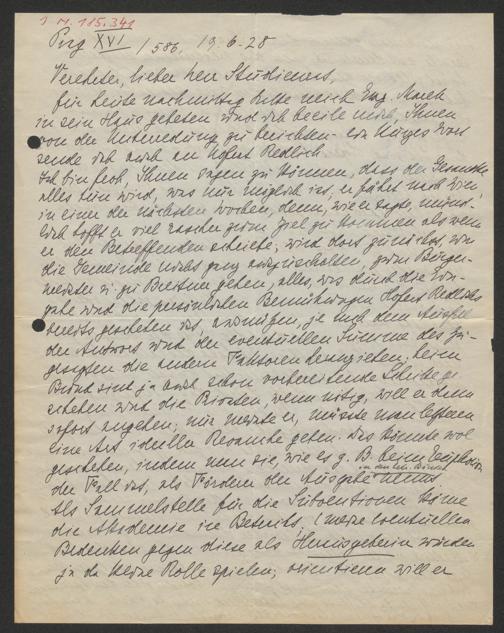 I. N. 185.341
Prg XVI / 586, 19-6-28
Verehrter, lieber Herr Studienrat,
für heute nachmittag hatte mich Ges. Marek
in sein Haus gebeten und ich beeile mich, Ihnen
von der Unterredung zu berichten – ein kurzes Wort
sende ich auch an Hofrat Redlich.
Ich bin froh, Ihnen sagen zu können, dass der Gesandte
alles tun wird, was nur möglich ist, er fährt nach Wien
in einer der nächsten Wochen, denn, wie er sagte, münd-
lich hofft er viel rascher zum Ziel zu kommen als wenn
er den Betreffenden schreibe; wird dort zunächst, um
die Gemeinde nicht ganz auszuschalten, zum Bürger-
meister u. zu Breitner gehen, alles, was durch die Ein-
gabe und die persönlichen Bemühungen Hofrat Redlichs
bereits geschehen ist, ausnützen, je nach dem Ausfall
der Antwort und der eventuellen Summe des Zu-
gesagten die andern Faktoren heranziehen; beim
Bund sind ja auch schon vorbereitende Schritte ge-
schehen und die Privaten, wenn nötig, will er dann
sofort angehen; nur meinte er, müsste man letzteren
eine Art ideellen Revanche geben. Das könnte wol
geschehen, indem man sie, wie es z. B. beim
der Fall ist, als Förderer der Ausgabe nennt.
Als Sammelstelle für die Subventionen käme
die Akademie in Betracht, (meine eventuellen
Bedenken gegen diese als Herausgeberin würden
ja da keine Rolle spielen; orientieren will er